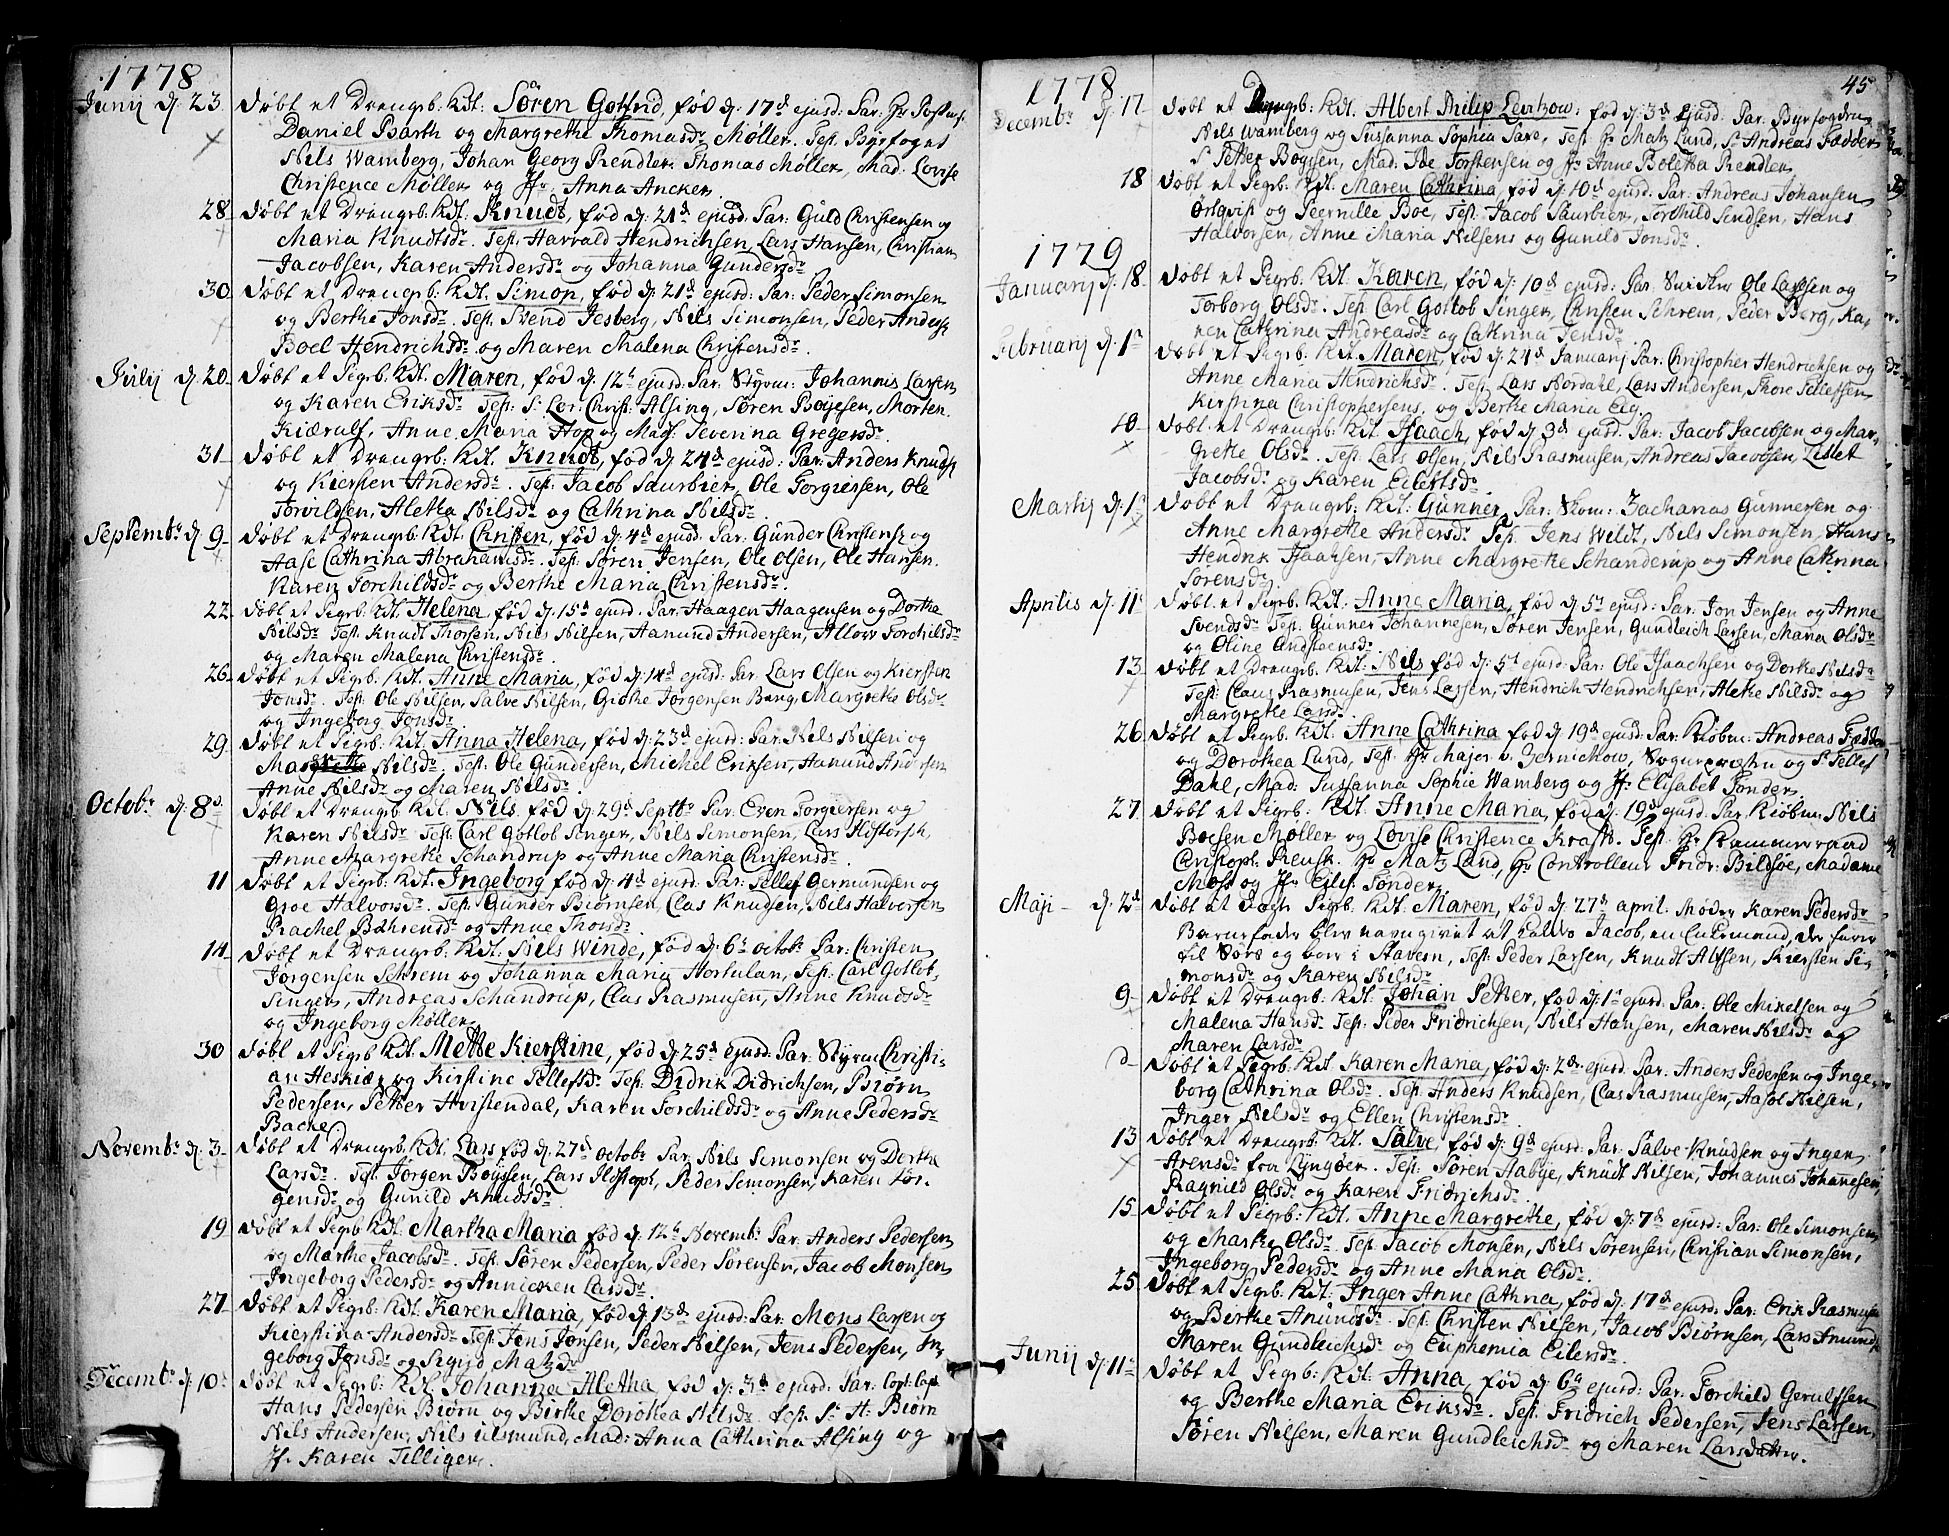 1778
Junij d: 23. døbt et Drengeb: Kdt: Sören Gotfrid, fød d: 17d ejusd. Par: Hr
Daniel Barth og Margrethe Thomasdr Møller. Test. Byefoget
Nils Wamberg, Johan Georg Rendler Thomas Møller, Mad: Lovise
Christence Møller og Jfr: Anna Ancker.
28 døbt et Drengeb: Kdt: Knudt, fød d: 21d ejusd. Par: Guld Christensen og
Maria Knudtsdr. Test. Harrald Hendrichsen, Lars Hansen, Christian
Jacobsen, Karen Andersdr og Johanna Gundersdr.
30 døbt et Drengeb: Kdt. Simon, fød d: 21d ejusd: Par: Peder Simonsen
og Berthe Jonsdr. Test. Svend Jesberg, Nils Simonsen, Peder Anders:
Boel Hendrichsdr og Maren Malena Christensdr.
Julij d. 20 døbt et Pigeb. Kdt. Maren, fød d: 12t ejusd. Par. Styrm: Johannis Larsen
og Karen Eriksdr Test: Sr Lor: Christ. Alsing, Søren Bøyesen, Morten
Kiærulf, Anne Maria Hop og Mad: Severina Gregersdr.
31 døbt et Drengeb: Kdt. Knudt, fød d 24d ejusd: Par: Anders Knuds:
og Kiersten Andersdr. Test: Jacob Saurbier, Ole Torgiersen, Ole
Torvildsen, Aletha Nilsdr og Cathrina Nilsdr.
Septembr d. 9 døbt et Drengeb. Kdt: Christen, fød d: 4d ejusd Par: Gunder Christens: og
Aase Cathrina Abrahamsdr. Test: Søren Jensen, Ole Olsen, Ole Hansen.
Karen Torchildsdr og Berthe Maria Christensdr.
22 døbt et Pigeb. Kdt. Helena fød d: 15d ejusd. Par: Haagen Haagensen og Dorthe
Nilsdr Test Knudt Thorsen, Niels Nilsen, Aanund Andersen, Allow Torchilsdr
og Maren Malena Christensdr.
26 døbt et Pigeb. Kdt: Anne Maria, fød d: 14d ejusd: Par Lars Olsen og Kiersten
Jonsdr. Test: Ole Nilsen, Salve Nilsen, Grothe Jørgensen Bang, Margrethe Olsdr
og Ingeborg Jonsdr
29 døbt et Pigeb: Kdt. Anna Helena, fød d: 23d ejusd: Par: Nils Nilsen og
Nilsdr. Test: Ole Gundersen, Michel Eriksen, Aanund Andersen
Anne Nilsdr og Maren Nilsdr.
Octobr d: 8d døbt et Drengeb Kdt. Nils fød d: 29d Septbr Par. Even Torgiersen og
Karen Nilsdr Test: Carl Gotlob Singer, Nils Simonsen, Lars Historph,
Anne Margrethe Schandrup og Anne Maria Christensdr.
11 døbt et Pigeb. Kdt. Ingeborg fød d: 4d ejusd: Par: Tellef Germundsen og
Groe Halvorsdr. Test: Gunder Biørnsen, Clas Knudsen, Nils Halvorsen
Rachel Bährensdr og Anne Thorsdr.
14 døbt et Drengeb: Kdt. Niels Winde, fød d: 6t octobr Par: Christen
Jørgensen Schrem og Johanna Maria Hortulan, Test: Carl Gotlob
Singer, Andreas Schandrup, Clas Rasmusen, Anne Knudsdr
og Ingeborg Møller.
30 døbt et Pigeb Kdt. Mette Kierstine, fød d: 25d ejusd: Par: Styrm Christi-
an Heskiær og Kirstine Tellefsdr. Test: Didrik Didrichsen, Biørn
Pedersen, Petter Hvistendal, Karen Torchildsdr og Anne Pedersdr
Bache.
Novembr d: 3 døbt et Drengeb. Kdt. Lars fød d. 27d octobr Par: Nils Simonsen og Dorthe
Larsdr. Test Jørgen Bøyesen, Lars Histoph, Peder Simonsen, Karen Jør-
gensdr og Gunild Knudsdr.
19 døbt et Pigeb Kdt. Martha Maria fød d: 12t Novembr Par: Anders Pedersen
og Marthe Jacobsdr. Test: Søren Pedersen, Peder Sørensen, Jacob Monsen
Ingeborg Pedersdr og Annicken Larsdr.
27 døbt et Pigeb. Kdt. Karen Maria, fød d: 13d ejusd: Par: Mons Larsen og
Kierstina Andersdr Test Jens Jonsen, Peder Nilsen, Jens Pedersen, In-
geborg Jonsdr og Sigrid Matzdr
Decembr d: 10 døbt et Pigeb: Kdt Johanna Aletha, fød d: 3d ejusd: Par:
Hans Pedersen Biørn og Birthe Dorothea Nilsdr. Test. Sr H: Biørn
Nils Andersen, Nils Ulsmund, Mad: Anna Cathrina Alsing og
Jf. Karen Telliger.
45
1778
Decembr d. 17 døbt et Drengb: Kdt: Albert Philip Lentzow: fød d: 3d Ejusd. Par. Byefogden
Nils Wamberg og Susanna Sophia Tare, Test. Hr Matz Lund, Sr Andreas Fædder
Sr Petter Boysen, Mad. Ide Torstensen og Jfr Anne Boletta Rendler.
18 døbt et Pigeb: Kdt. Maren Cathrina, fød d: 10d ejusd. Par: Andreas Johansen
Örlqvist og Peernille Boe, Test. Jacob Saurbier, Torchild Sindsen, Hans
Halvorsen, Anne Maria Nilsens og Gunild Jonsdr.
1779
Januarij d. 18. døbt et Pigeb. Kdt. Karen, fød d: 10d ejusd: Par: Ole Larssen og
Torborg Olsdr. Test: Carl Gotlob Singer, Christen Schrem, Peder Berg, Ka-
ren Cathrina Andreasdr og Cathrina Jensdr.
Februarij d. 1 døbt et Pigeb: Kdt. Maren, fød d: 24d Januarij Par: Christopher Hendrichsen og
Anne Maria Hendrichsdr. Test. Lars Nordahl, Lars Andersen, Thore Tellefsen
Kirstina Christophersens, og Berthe Maria Eeg.
10 døbt et Drengeb: Kdt Isaach, fød d 3d ejusd: Par: Jacob Jacobsen og Mar-
grethe Olsdr. Test: Lars Olsen, Nils Rasmusen, Andreas Jacobsen, Zibet
Jacobsdr og Karen Eilertsdr.
Martij d: 1 døbt et Drengeb: Kdt. Gunner Par: Skom: Zacharias Gunnersen og
Anne Margrethe Andersdr Test. Jens Wildt, Nils Simonsen, Hans
Hendrik Isaachsen, Anne Margrethe Schanderup og Anne Cathrina
Sørensdr.
Aprilis d. 11 døbt et Pigeb. Kdt: Anne Maria, fød d: 5t ejusd: Par: Jon Jensen og Anne
Svendsdr Test: Gunner Johannesen, Søren Jensen, Gundleich Larsen, Maria Olsdr
og Oline Andstensdr:
13 døbt et Drengeb. Kdt: Nils fød d: 5t ejusd: Par: Ole Isaachsen og Dorthe Nilsdr
Test: Claus Rasmusen, Jens Lassen, Hendrich Hendrichsen, Alethe Nilsdr og
Margrethe Larsdr.
26 døbt et Pigeb: Kdt. Anne Cathrina fød d 19d ejusd: Par: Kiøbm: Andreas Fædder
og Dorothea Lund, Test: Hr Majer v. Zernichow, Sogneprästen og Sr Tellef
Dahl, Mad: Sussanna Sophie Wamberg og Jf: Elisabet Tønder.
27 døbt et Pigeb: Kdt. Anne Maria, fød d. 19d ejusd: Par. Kiøbm. Nils
Boesen Møller og Lovise Christence Kraft. Test. Hr Kammerraad
Cristoph. Rensk. Hr Matz Lund, Hr Controlleur Fridr: Bildsøe, Madame
Moss og Jfr Elis: Tønder.
Maji d: 2d døbt et Pigeb Kdt. Maren, fød d: 27d april. Modr Karen Pedersdr
Barnefader blev navngivet at kaldes Jacob, en Enkemand, der farer
til Søes og boer i Stavern, Test Peder Larsen, Knudt Alfsen, Kiersten Si-
monsdr og Karen Nilsdr.
9 døbt et Drengeb: Kdt: Johan Petter, fød d: 1t ejusd: Par: Ole Mikelsen og
Malena Hansdr Test: Peder Fridrichsen, Nils Hansen, Maren Nilsdr og
Maren Larsdr.
d døbt et Pigeb: Kdt Karen Maria, fød d: 2de ejusd: Par: Anders Pedersen og Inge-
borg Cathrina Olsdr. Test Anders Knudsen, Clas Rasmusen, Aasol Nilsen,
Inger Nilsdr og Ellen Christensdr.
13 døbt et Drengeb: Kdt. Salve, fød d: 9d ejusd: Par. Salve Knudsen og Inger
Arensdr fra Lyngøer. Test. Søren Aabye, Knudt Nilsen, Johannes Johannesen,
Ragnild Olsdr og Karen Fridrichsdr.
15 døbt et Pigeb: Kdt. Anne Margrethe, fød d: 7d ejusd: Par: Ole Simonsen
og Marthe Olsdr. Test Jacob Monsen, Nils Sørensen, Christian Simonsen,
Ingeborg Pedersdr og Anne Maria Olsdr.
25 døbt et Pigeb: Kdt: Inger Anne Cathrina, fød d: 17d ejusd: Par: Erik Rasmusen
og Birthe Anundsdr. Test: Christen Nilsen, Jacob Biørnsen, Lars Amunds:
Maren Gundleichsdr og Euphemia Eilersdr.
Junij d: 11 døbt et Pigeb: Kdt. Anna, fød d: 6d ejusd: Par. Torchild Gerulfsen
og Berthe Maria Eriksdr. Test Fridrich Pedersen, Jens Larsen,
Søren Nilsen, Maren Gundleichsdr og Maren Larsdatter.